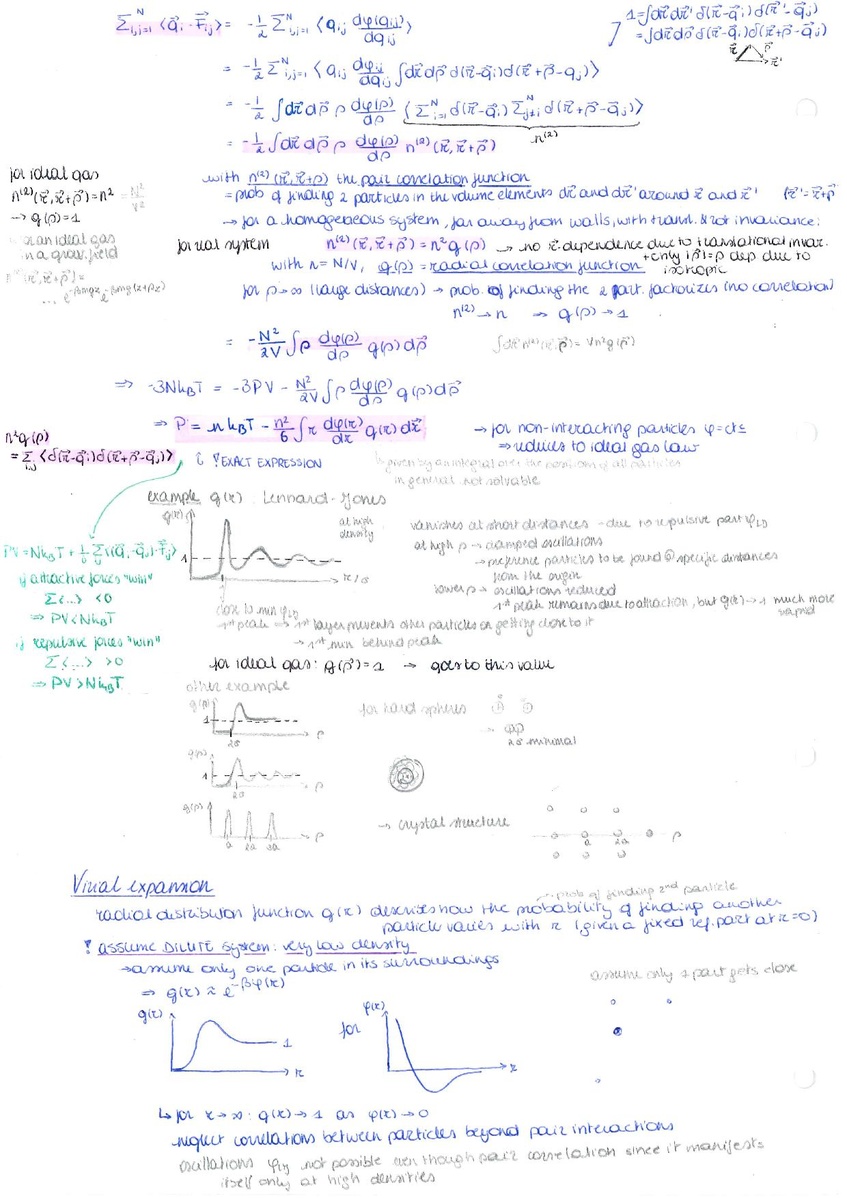 Σ_{i,j=1}^N ⟨q⃗_i · F⃗_ij⟩ = -1/2 Σ_{i,j=1}^N ⟨q_ij dφ(q_ij)/dq_ij⟩
1 = ∫dr⃗dr⃗' δ(r⃗-q⃗_i) δ(r⃗'-q⃗_j)
= ∫dr⃗dρ⃗ δ(r⃗-q⃗_i) δ(r⃗+ρ⃗-q⃗_j)
= -1/2 Σ_{i,j=1}^N ⟨q_ij dφ_ij/dq_ij ∫dr⃗dρ⃗ δ(r⃗-q⃗_i) δ(r⃗+ρ⃗-q_j)⟩
= -1/2 ∫dr⃗dρ⃗ ρ dφ(ρ)/dρ ⟨Σ_{i=1}^N δ(r⃗-q⃗_i) Σ_{j≠i}^N δ(r⃗+ρ⃗-q⃗_j)⟩
n^(2)
= -1/2 ∫dr⃗dρ⃗ ρ dφ(ρ)/dρ n^(2)(r⃗, r⃗+ρ⃗)
for ideal gas
n^(2)(r⃗, r⃗+ρ⃗) = n² = N²/V²
→ g(ρ) = 1
for an ideal gas
in a grav. field
n^(2)(r⃗, r⃗+ρ⃗) =
... e^{-βmgz} e^{-βmg(z+ρz)}
with n^(2)(r⃗, r⃗+ρ) the pair correlation function
= prob of finding 2 particles in the volume elements dr⃗ and dr⃗' around r⃗ and r⃗' (r⃗' = r⃗+ρ⃗
→ for a homogeneous system, far away from walls, with transl. & rot invariance:
for real system n^(2)(r⃗, r⃗+ρ⃗) = n² g(ρ) → no r⃗ dependence due to translational invar.
+ only |ρ⃗| = ρ dep due to
isotropic
with n = N/V, g(ρ) = radial correlation function
for ρ → ∞ (large distances) → prob. of finding the 2 part. factorizes (no correlation)
n^(2) → n ⇒ g(ρ) → 1
= -N²/2V ∫ρ dφ(ρ)/dρ g(ρ) dρ⃗
∫dr⃗ n^(2)(r⃗, ρ⃗) = Vn²g(ρ⃗)
⇒ -3Nk_BT = -3PV - N²/2V ∫ρ dφ(ρ)/dρ g(ρ) dρ⃗
⇒ P = n k_BT - n²/6 ∫r dφ(r)/dr g(r) dr⃗
→ for non-interacting particles φ = cte
⇒ reduces to ideal gas law
n²g(ρ)
= Σ_{i,j} ⟨δ(r⃗-q⃗_i) δ(r⃗+ρ⃗-q⃗_j)⟩
! EXACT EXPRESSION
given by an integral over the positions of all particles
in general not solvable
example g(r): Lennard-Jones
g(r)
1
at high
density
r/σ
close to min φ_LJ
1st peak ⇒ 1st layer prevents other particles on getting close to it
→ 1st min behind peak
vanishes at short distances - due to repulsive part φ_LJ
at high ρ → damped oscillations
→ preference particles to be found @ specific distances
from the origin
lower ρ → oscillations reduced
1st peak remains due to attraction, but g(r) → 1 much more
rapid
PV = Nk_BT + 1/6 Σ_ij ⟨(q⃗_i-q⃗_j)·F⃗_ij⟩
if attractive forces "win"
Σ⟨...⟩ < 0
⇒ PV < Nk_BT
if repulsive forces "win"
Σ⟨...⟩ > 0
⇒ PV > Nk_BT
for ideal gas: g(ρ⃗) = 1 → goes to this value
other example
g(ρ)
1
2σ
ρ
for hard spheres
2σ minimal
g(ρ)
1
2σ
ρ
g(ρ)
a 2a 3a
ρ
→ crystal structure
a 2a ρ
Virial expansion
→ prob of finding 2nd particle
radial distribution function g(r) describes how the probability of finding another
particle varies with r (given a fixed ref. part at r=0)
! assume DILUTE system: very low density
→ assume only one particle in its surroundings
⇒ g(r) ≈ e^{-βφ(r)}
assume only 1 part gets close
g(r)
1
r
for
φ(r)
r
↳ for r → ∞: g(r) → 1 as φ(r) → 0
neglect correlations between particles beyond pair interactions
oscillations φ_LJ not possible even though pair correlation since it manifests
itself only at high densities